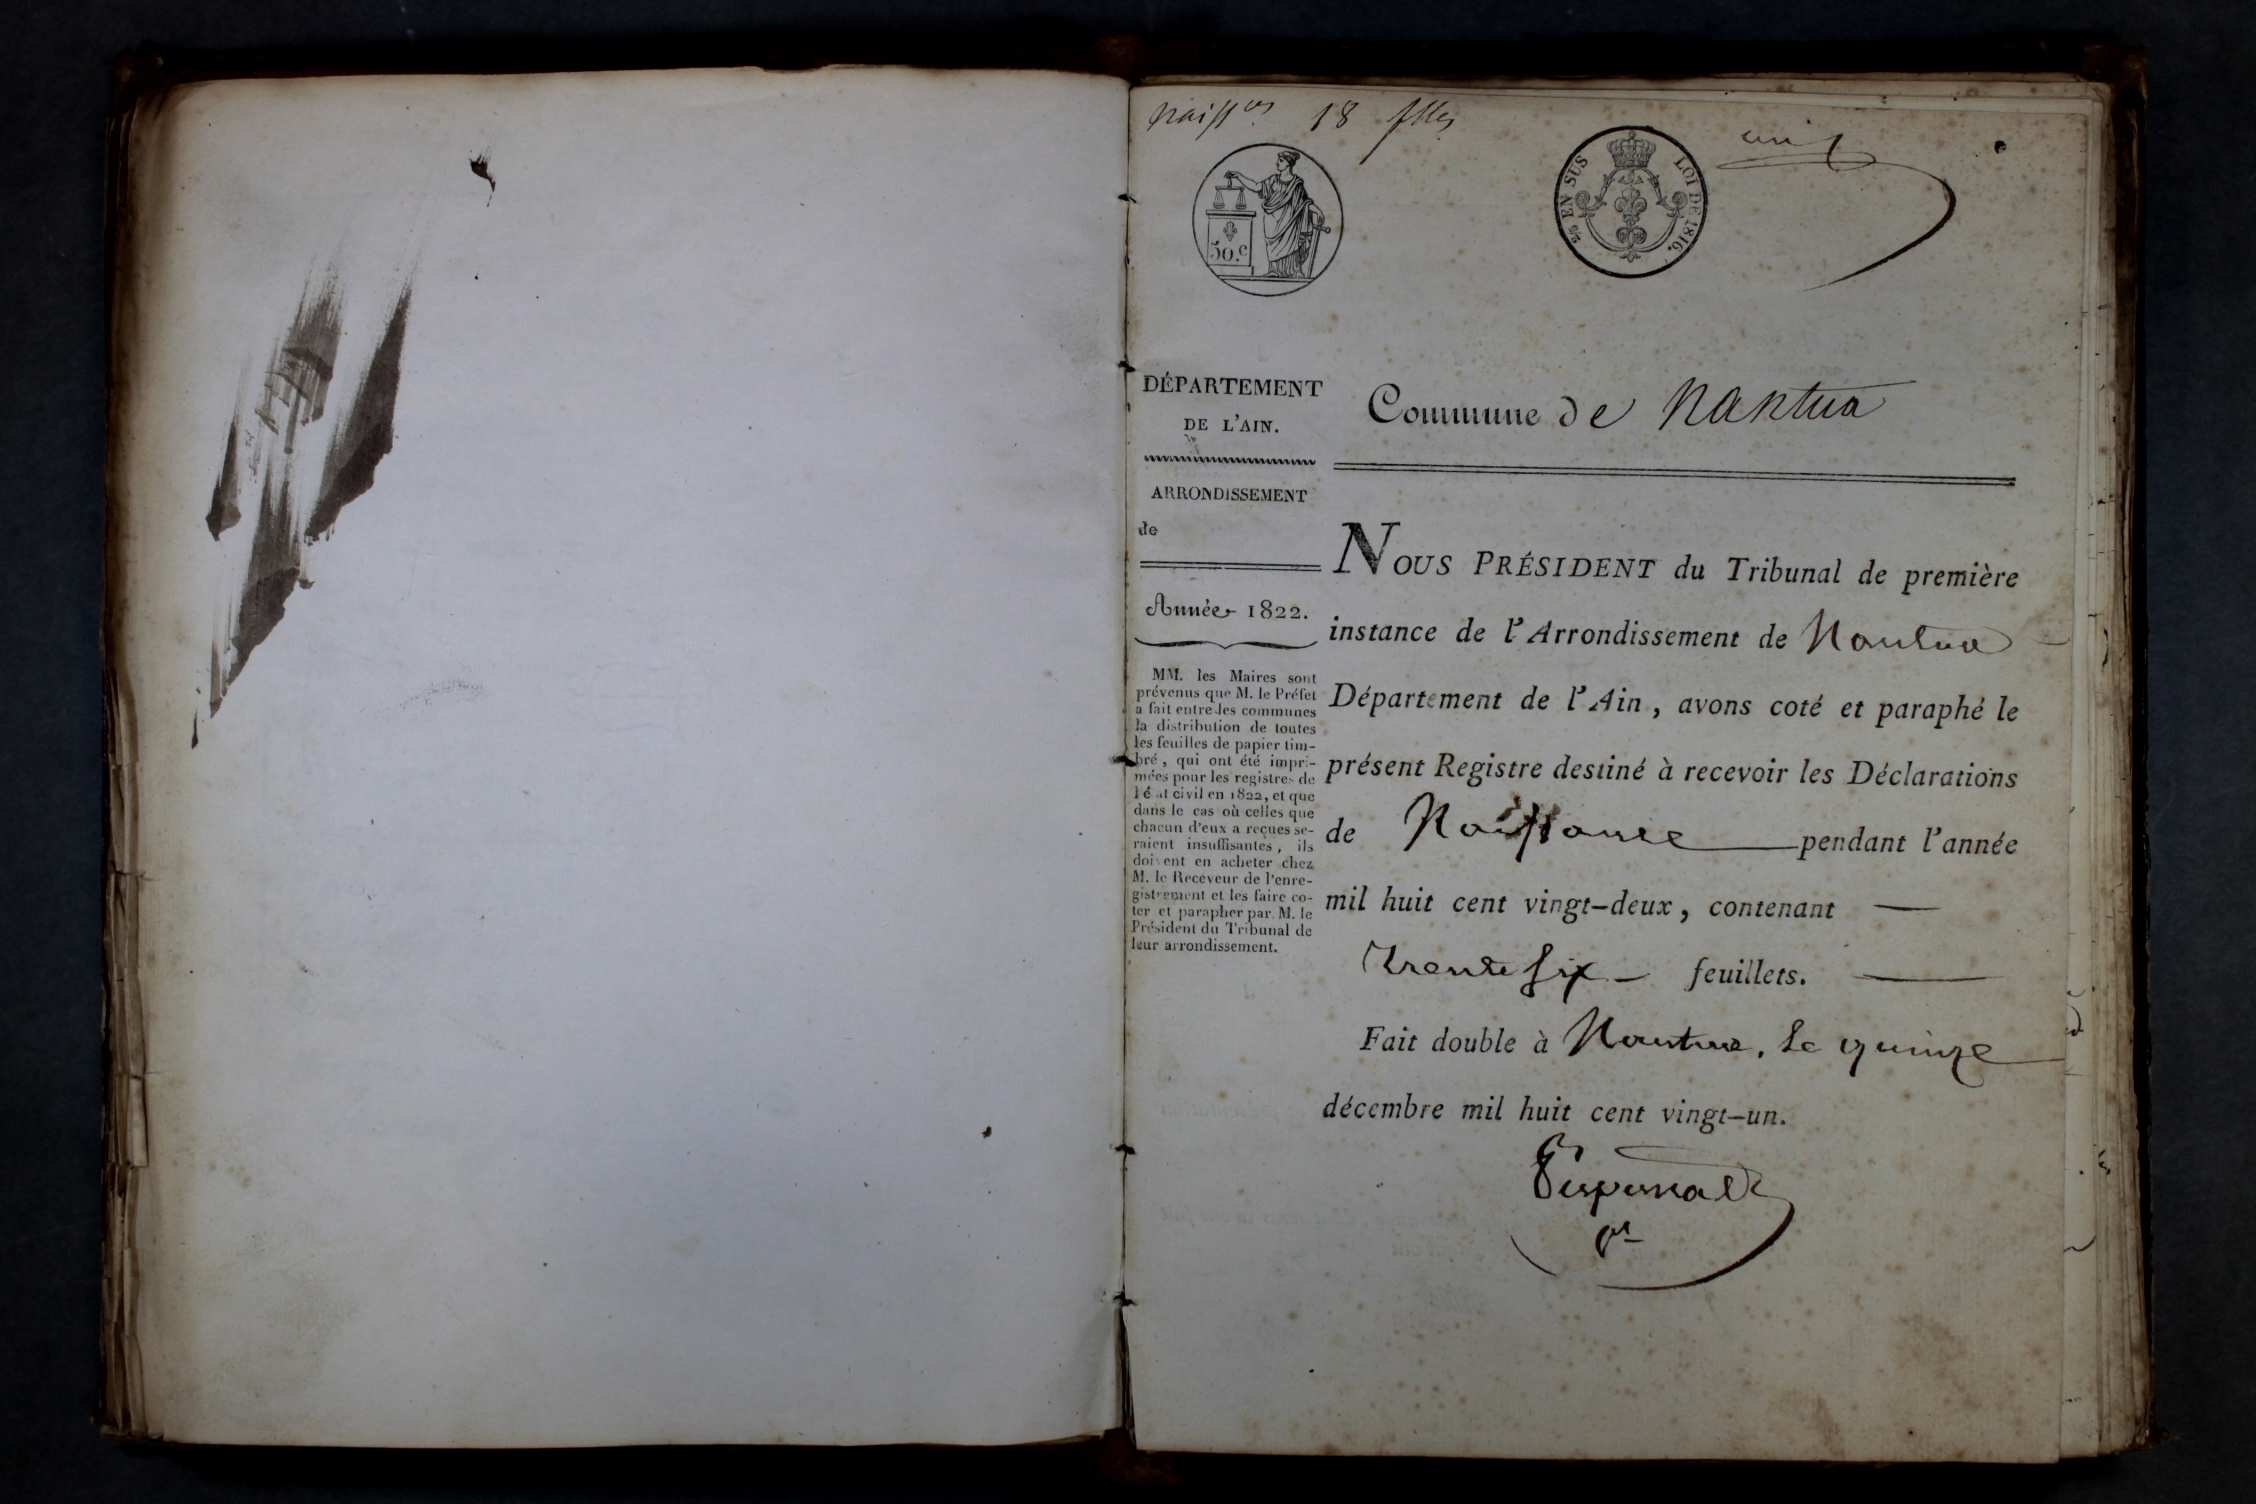 naiss.ces 18 flles
un
50.c
EN SUS
LOI DE 1816.
DÉPARTEMENT
DE L'AIN.
ARRONDISSEMENT
de
Année 1822.
MM. les Maires sont
prévenus que M. le Préfet
a fait entre les communes
la distribution de toutes
les feuilles de papier tim-
bré, qui ont été impri-
mées pour les registres de
l'état civil en 1822, et que
dans le cas où celles que
chacun d'eux a reçues se-
raient insuffisantes, ils
doivent en acheter chez
M. le Receveur de l'enre-
gistrement et les faire co-
ter et parapher par M. le
Président du Tribunal de
leur arrondissement.
Commune de Nantua
NOUS PRÉSIDENT du Tribunal de première
instance de l'Arrondissement de Nantua
Département de l'Ain, avons coté et paraphé le
présent Registre destiné à recevoir les Déclarations
de Naissance pendant l'année
mil huit cent vingt-deux, contenant —
trente six — feuillets. —
Fait double à Nantua, le quinze
décembre mil huit cent vingt-un.